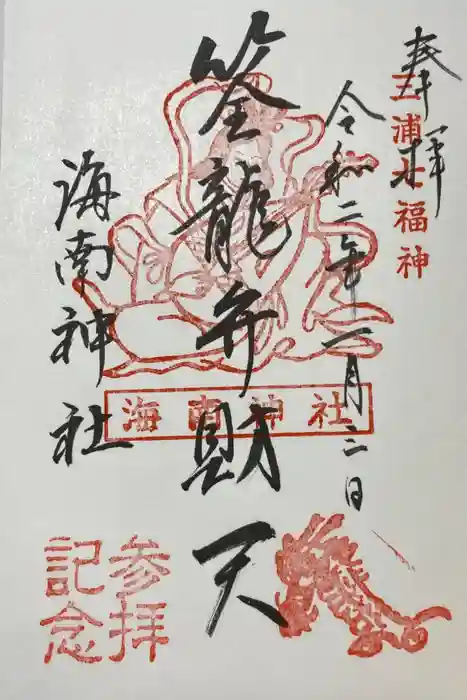 奉拝
三浦七福神
令和二年一月三日
筌龍弁財天
海南神社
海南神社
参拝
記念